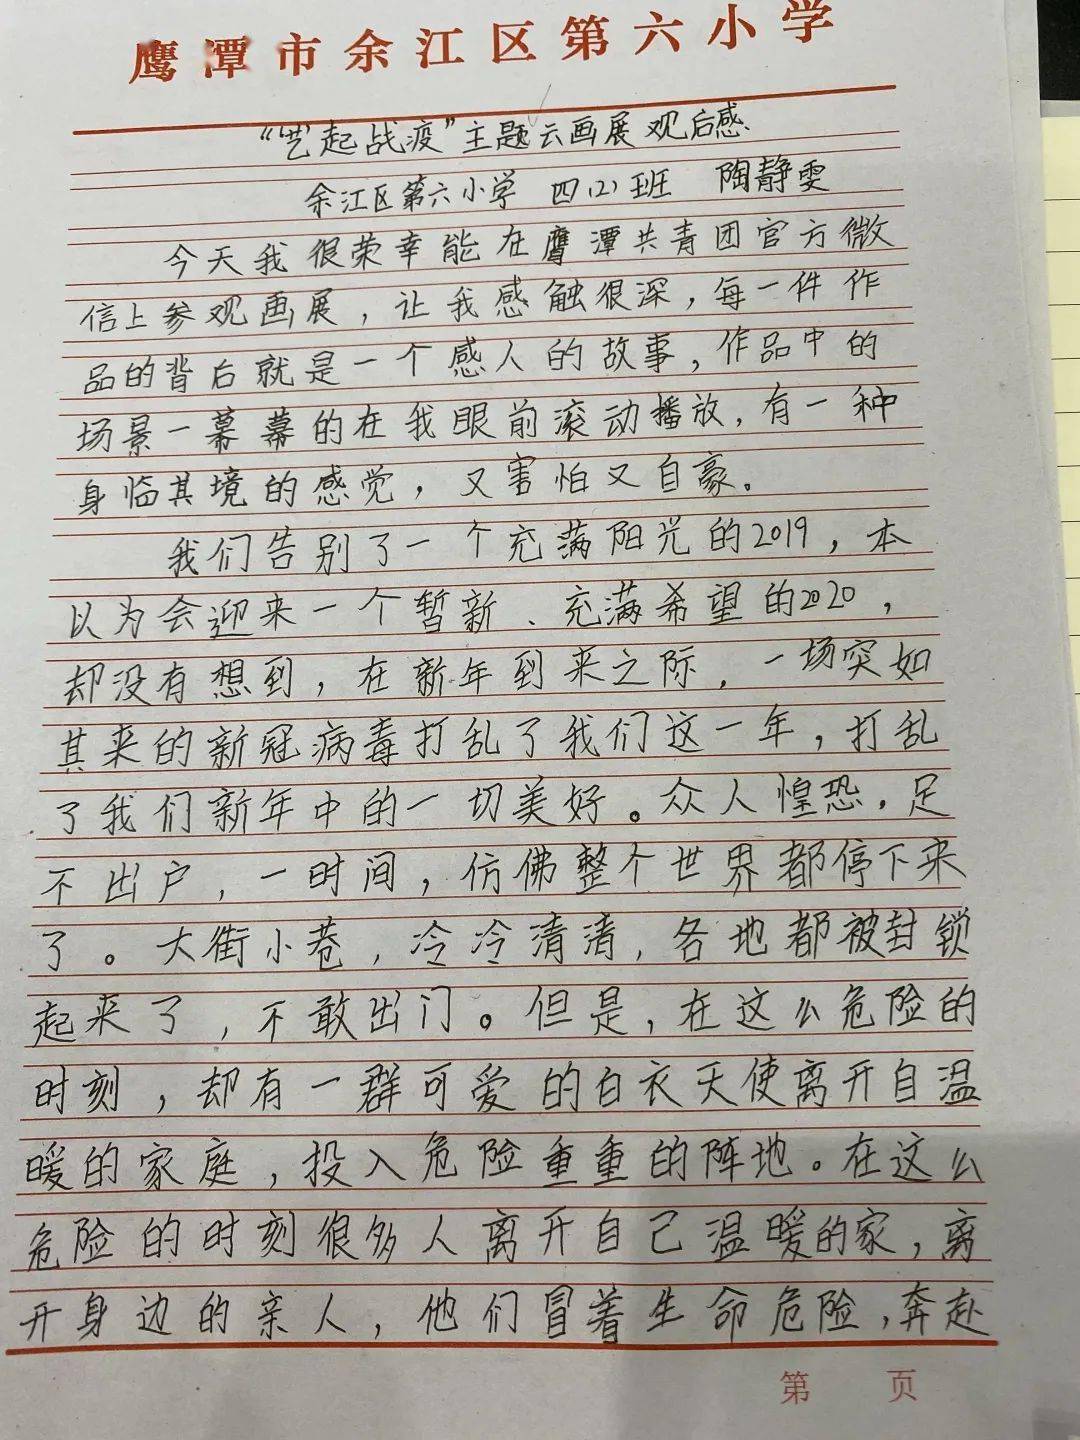 鹰潭市余江区第六小学
“艺起战疫”主题云画展观后感
余江区第六小学 四(2)班 陶静雯
今天我很荣幸能在鹰潭共青团官方微
信上参观画展，让我感触很深，每一件作
品的背后就是一个感人的故事，作品中的
场景一幕幕的在我眼前滚动播放，有一种
身临其境的感觉，又害怕又自豪。
我们告别了一个充满阳光的2019，本
以为会迎来一个暂新、充满希望的2020，
却没有想到，在新年到来之际，一场突如
其来的新冠病毒打乱了我们这一年，打乱
了我们新年中的一切美好。众人惶恐，足
不出户，一时间，仿佛整个世界都停下来
了。大街小巷，冷冷清清，各地都被封锁
起来了，不敢出门。但是，在这么危险的
时刻，却有一群可爱的白衣天使离开自温
暖的家庭，投入危险重重的阵地。在这么
危险的时刻很多人离开自己温暖的家，离
开身边的亲人，他们冒着生命危险，奔赴
第 页